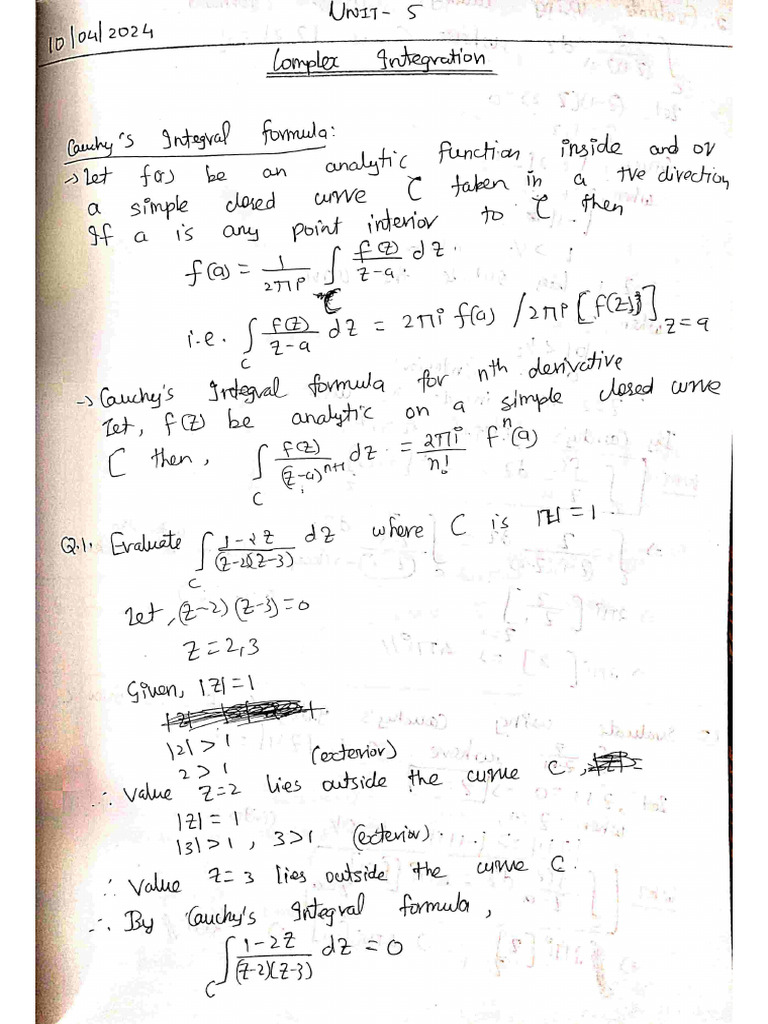 UNIT - 5
10/04/2024
Complex Integration
Cauchy's Integral formula:
-> Let f(z) be an analytic function inside and on
a simple closed curve C taken in a +ve direction
If a is any point interior to C then
f(a) = 1/2πi ∫_C f(z)/z-a dz.
i.e. ∫_C f(z)/z-a dz = 2πi f(a) / 2πi [f(z)]_z=a
-> Cauchy's Integral formula for nth derivative
Let, f(z) be analytic on a simple closed curve
C then, ∫_C f(z)/(z-a)^n+1 dz = 2πi/n! f^n(a)
Q.1. Evaluate ∫_C 1-2z/(z-2)(z-3) dz where C is |z| = 1.
Let, (z-2)(z-3)=0
z = 2,3
Given, |z| = 1
|2| > 1
2 > 1 (exterior)
∴ Value z=2 lies outside the curve C,
|z| = 1
|3| > 1, 3 > 1 (exterior).
∴ Value z= 3 lies outside the curve C.
∴ By Cauchy's Integral formula,
∫_C 1-2z/(z-2)(z-3) dz = 0